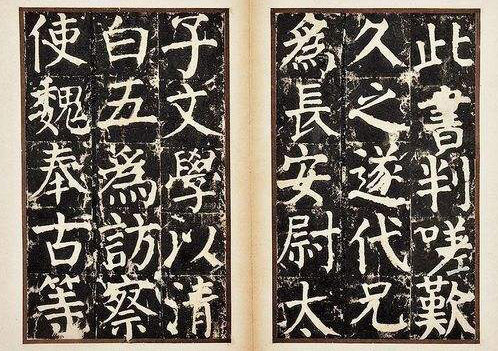 此書判嗟歎
久之遂代兄
為長安尉太
子文學以清
白五為訪察
使魏奉古等